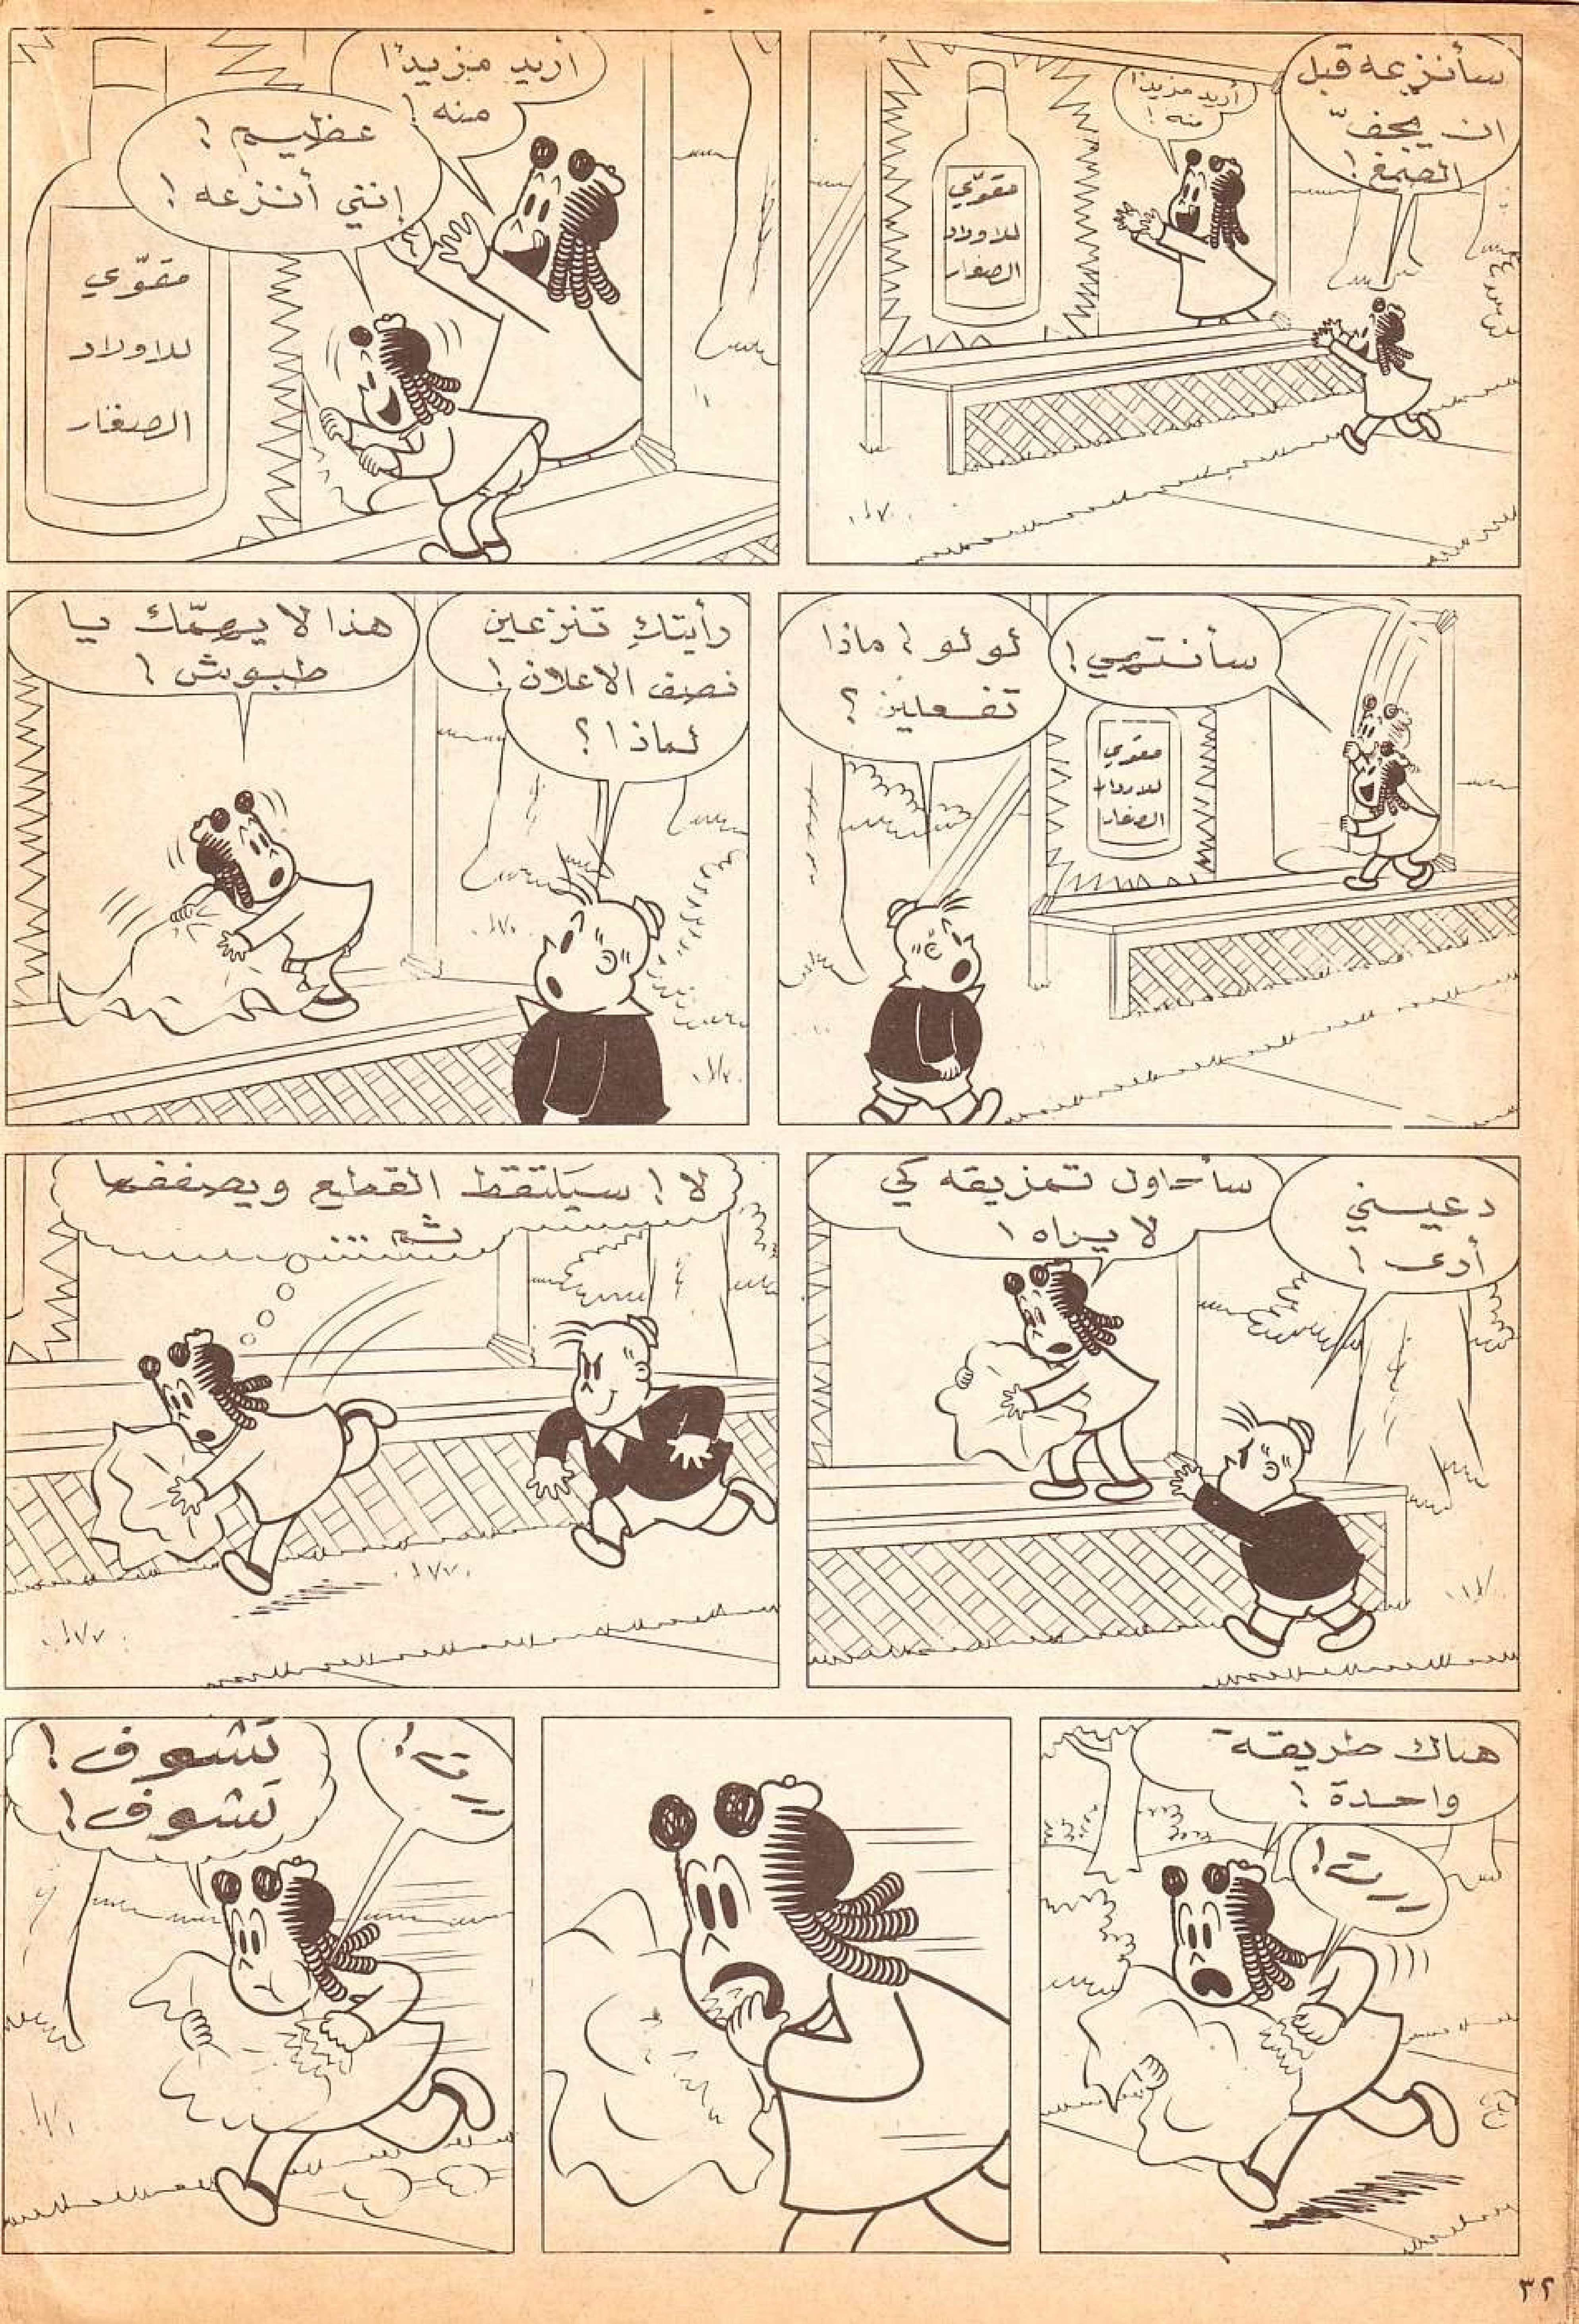 سأنزعه قبل
ان يجفّ
الصمغ!
أريد مزيدًا
منه!
مقوّي
للاولاد
الصغار
أريد مزيدًا
منه!
عظيم!
إنني أنزعه!
مقوّي
للاولاد
الصغار
سأنتهي!
لولو! ماذا
تفعلين؟
مقوّي
للاولاد
الصغار
رأيتكِ تنزعين
نصف الاعلان!
لماذا؟
هذا لا يهمّك يا
طبوش!
دعيني
أرى!
سأحاول تمزيقه كي
لا يراه!
لا! سيلتقط القطع ويصففها
ثم ...
هناك طريقة
واحدة!
ررت!
ررت!
تشوف!
تشوف!
٣٢